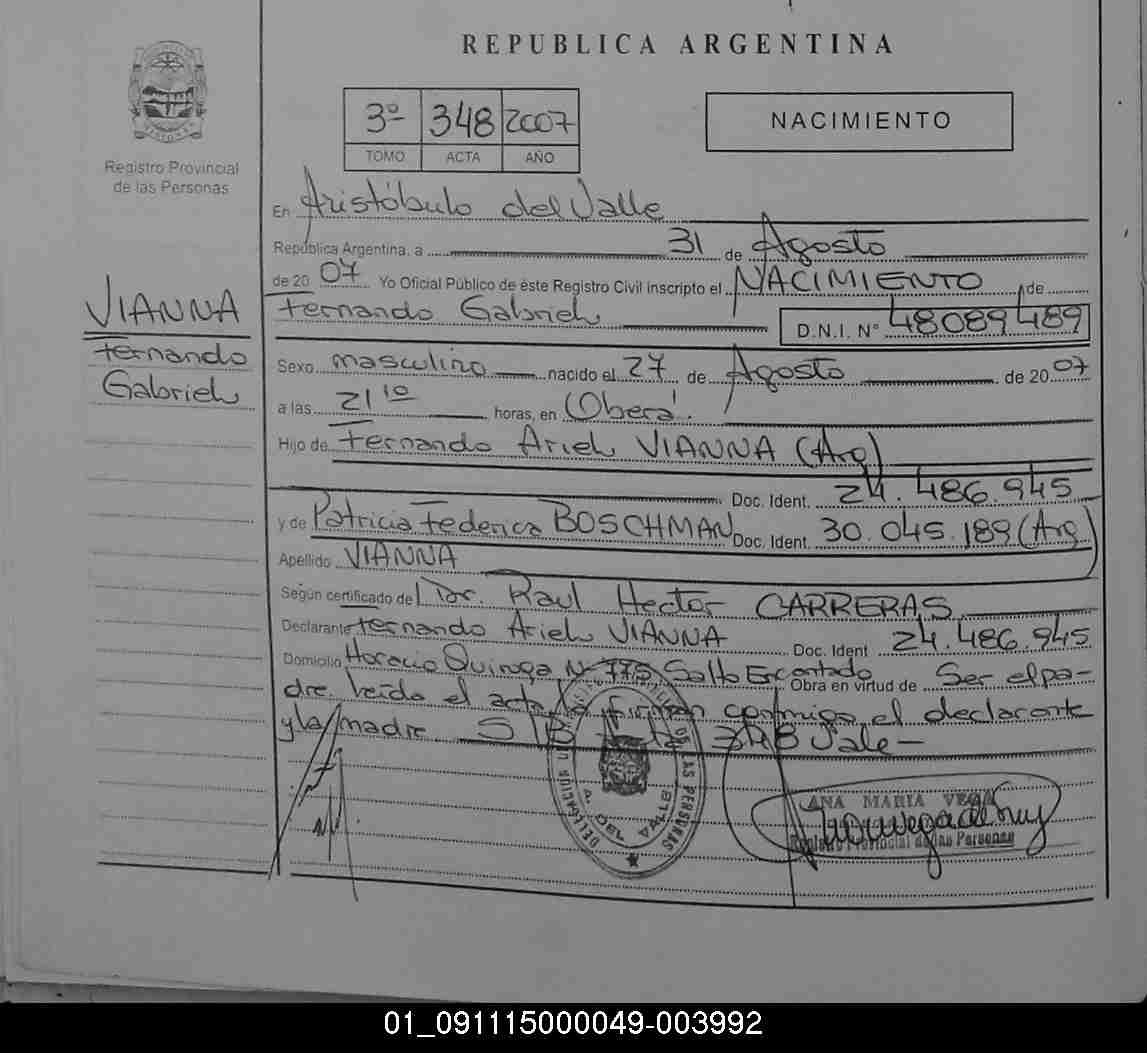 REPUBLICA ARGENTINA
Registro Provincial
de las Personas
3º 348 2007
TOMO ACTA AÑO
NACIMIENTO
En Aristóbulo del Valle
República Argentina, a 31 de Agosto
de 20 07 Yo Oficial Público de éste Registro Civil inscripto el NACIMIENTO de
Fernando Gabriel D.N.I. Nº 48089489
VIANNA
Fernando
Gabriel
Sexo masculino nacido el 27 de Agosto de 20 07
a las 21 10 horas, en Oberá.
Hijo de Fernando Ariel VIANNA (Arg)
Doc. Ident. 24.486.945
y de Patricia Federica BOSCHMAN Doc. Ident. 30.045.189 (Arg)
Apellido VIANNA
Según certificado de Dr. Raul Hector CARRERAS
Declarante Fernando Ariel VIANNA Doc. Ident 24.486.945
Domicilio Horacio Quiroga Nº 775 Salto Encantado Obra en virtud de Ser el pa-
dre leído el acta la firman conmigo el declarante
y la madre. S/B 348 Vale-
DELEGACION DE LAS PERSONAS
A. DEL VALLE
ANA MARIA VEGA
Registro Provincial de las Personas
01_091115000049-003992